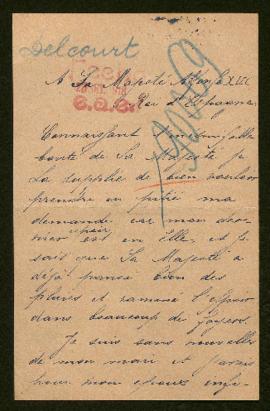 Delcourt
A Sa Majesté Alfonse XIII
Roi d'Espagne
Connaissant l'inépuisable
bonté de Sa Majesté je
La supplie de bien vouloir
prendre en pitié ma
demande car mon
espoir est en Elle, et je
sais que Sa Majesté a
déjà pansé bien des
plaies et ramené l'espoir
dans beaucoup de foyers.
Je suis sans nouvelles
de mon mari et
pour mon époux